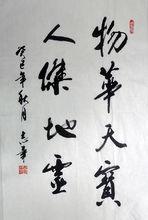 物華天寶
人傑地靈
癸巳年秋月志華